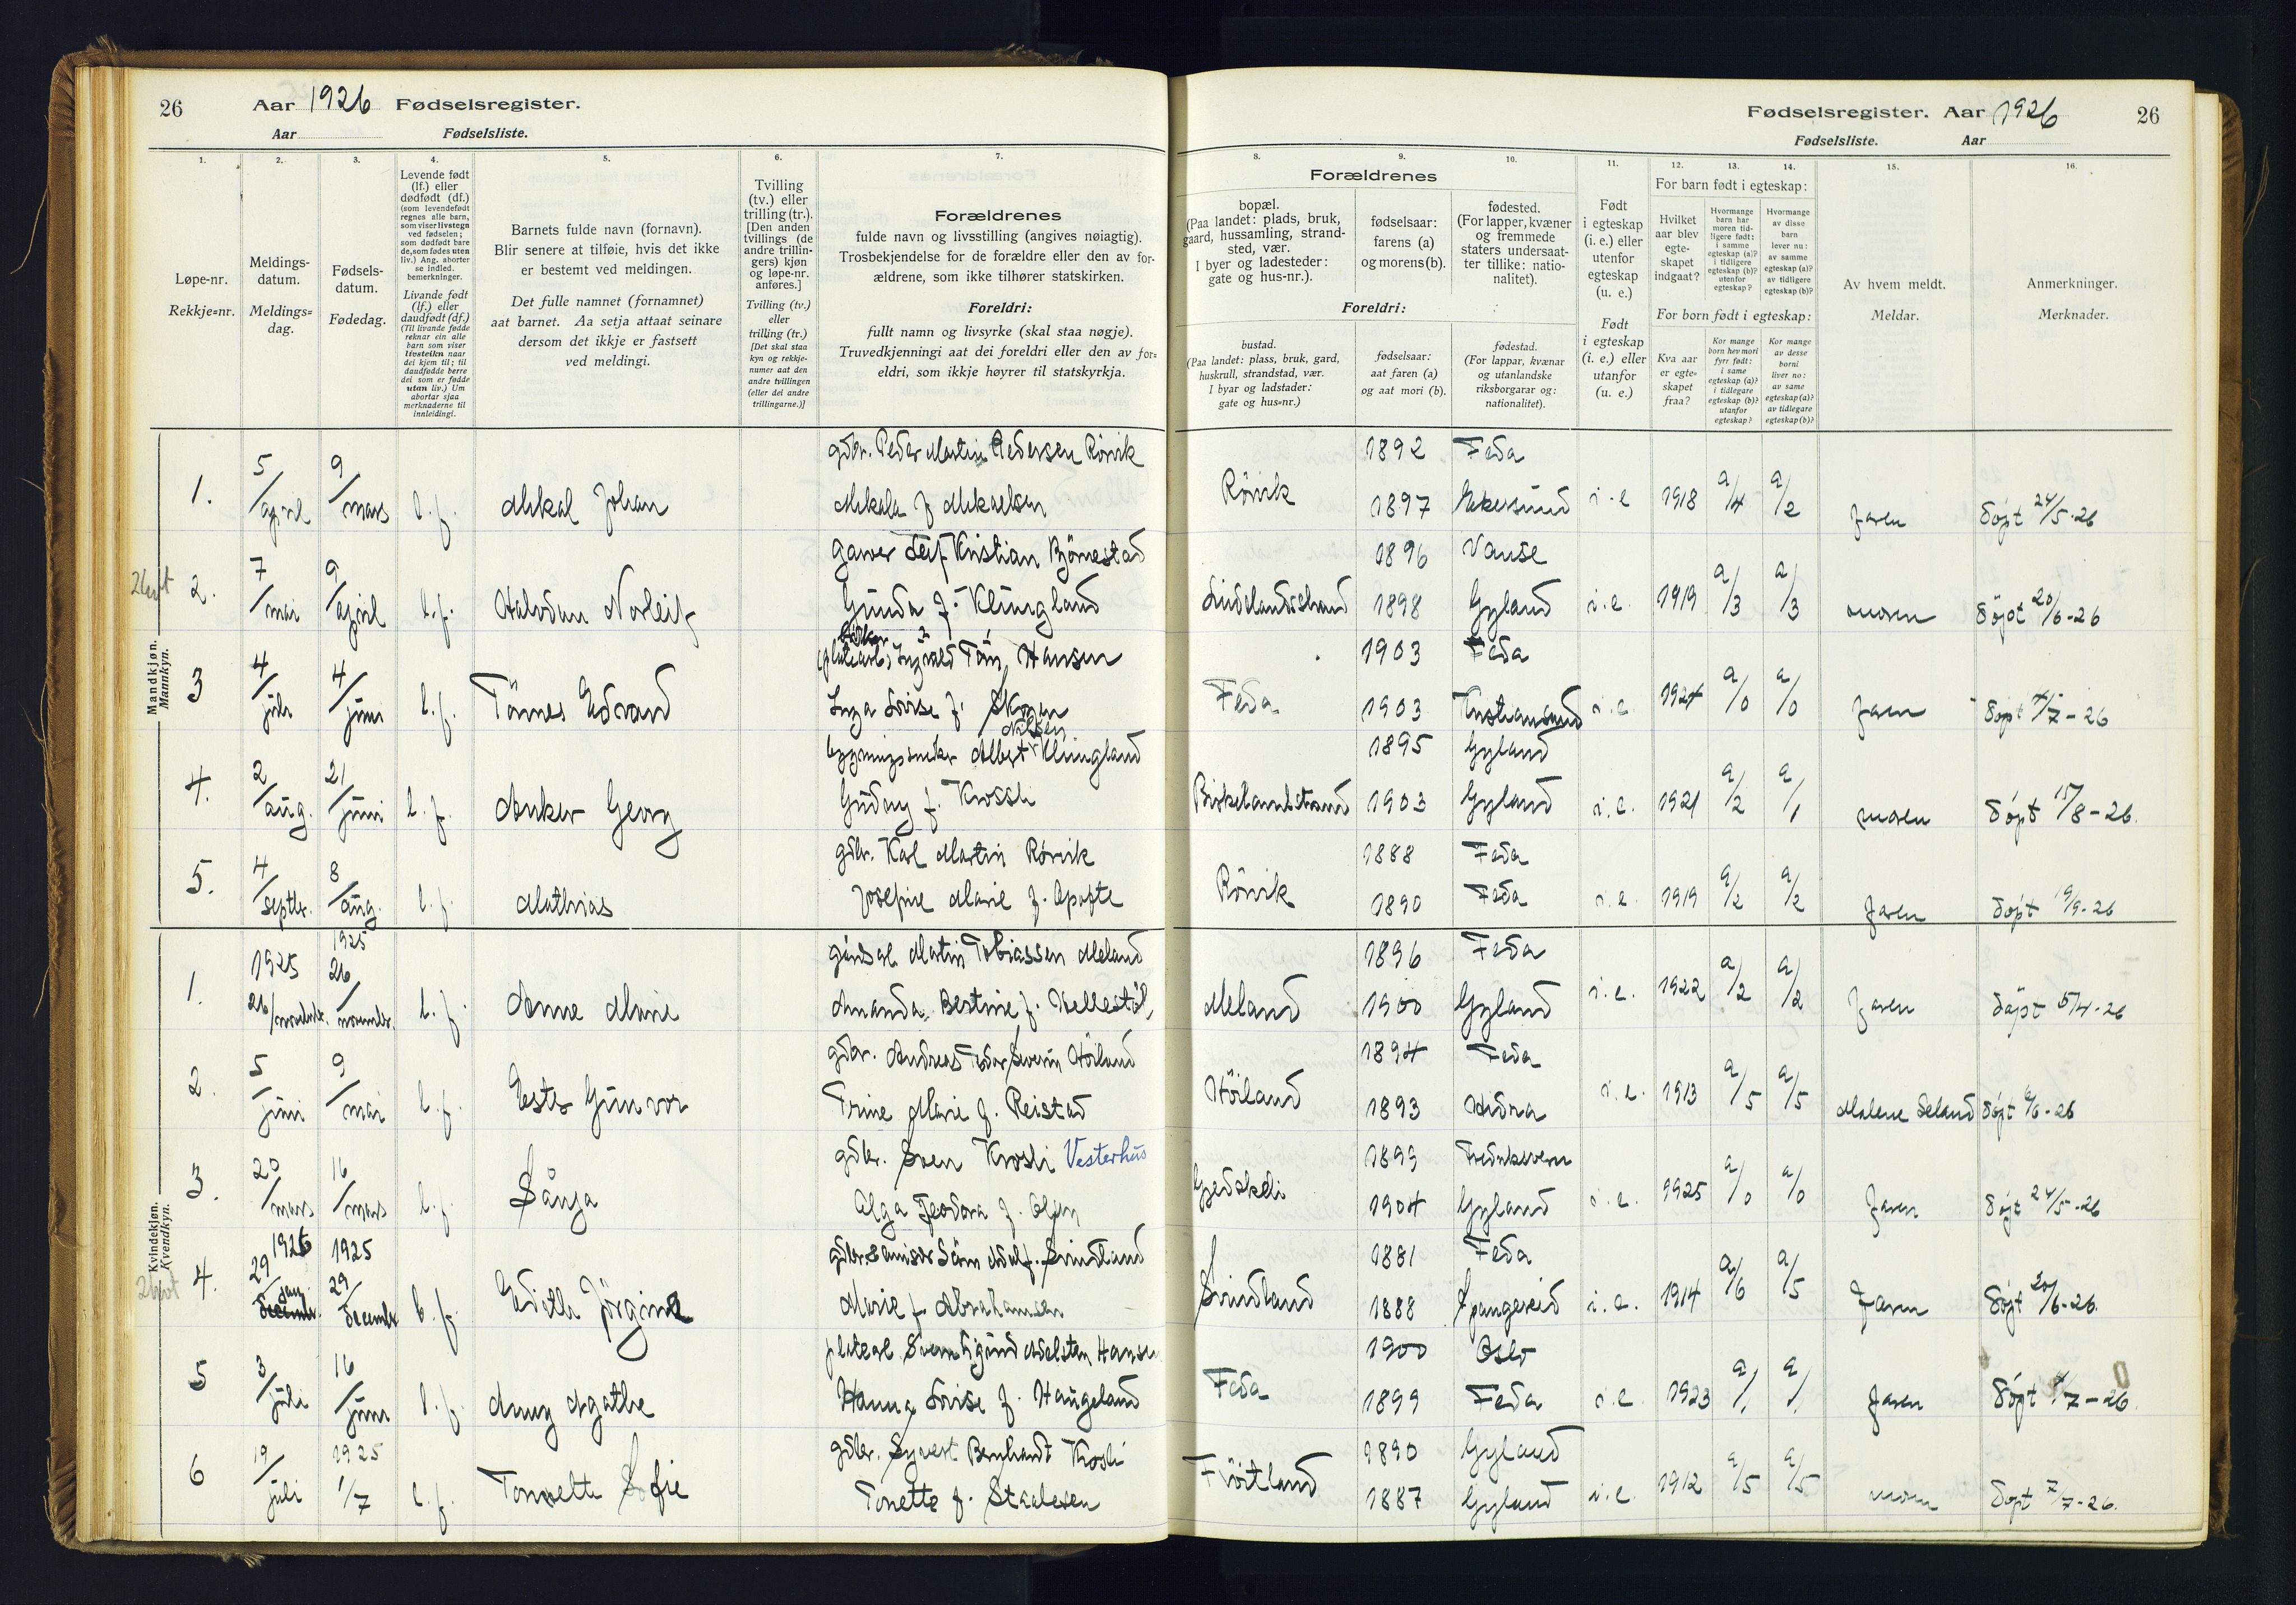 26 Aar 1926 Fødselsregister.
Aar Fødselsliste.
Fødselsregister. Aar 1926 26
Fødselsliste. Aar
1. 2. 3. 4. 5. 6. 7.
Løpe-nr.
Rekkje=nr.
Meldings-
datum.
Meldings=
dag.
Fødsels-
datum.
Fødedag.
Levende født
(lf.) eller
dødfødt (df.)
(som levendefødt
regnes alle barn,
som viser livstegn
ved fødselen;
som dødfødt bare
de, som fødes uten
liv.) Ang. aborter
se indled.
bemerkninger.
Livande født
(lf.) eller
daudfødt (df.)
(Til livande fødde
reknar ein alle
barn som viser
livsteikn naar
dei kjem til; til
daudfødde berre
dei som er fødde
utan liv.) Um
abortar sjaa
merknaderne til
innleidingi.
Barnets fulde navn (fornavn).
Blir senere at tilføie, hvis det ikke
er bestemt ved meldingen.
Det fulle namnet (fornamnet)
aat barnet. Aa setja attaat seinare
dersom det ikkje er fastsett
ved meldingi.
Tvilling
(tv.) eller
trilling (tr.).
[Den anden
tvillings (de
andre trillin-
gers) kjøn
og løpe-nr.
anføres.]
Tvilling (tv.)
eller
trilling (tr.)
[Det skal staa
kyn og rekkje-
numer aat den
andre tvillingen
(eller dei andre
trillingarne.)]
Forældrenes
fulde navn og livsstilling (angives nøiagtig).
Trosbekjendelse for de forældre eller den av for-
ældrene, som ikke tilhører statskirken.
Foreldri:
fullt namn og livsyrke (skal staa nøgje).
Truvedkjenningi aat dei foreldri eller den av for=
eldri, som ikkje høyrer til statskyrkja.
8. 9. 10. 11. 12. 13. 14. 15. 16.
Forældrenes
bopæl.
(Paa landet: plads, bruk,
gaard, hussamling, strand-
sted, vær.
I byer og ladesteder:
gate og hus-nr.).
fødselsaar:
farens (a)
og morens (b).
fødested.
(For lapper, kvæner
og fremmede
staters undersaat-
ter tillike: natio-
nalitet).
Foreldri:
bustad.
(Paa landet: plass, bruk, gard,
huskrull, strandstad, vær.
I byar og ladstader:
gate og hus=nr.)
fødselsaar:
aat faren (a)
og aat mori (b).
fødestad.
(For lappar, kvænar
og utanlandske
riksborgarar og:
nationalitet).
Født
i egteskap
(i. e.) eller
utenfor
egteskap
(u. e.)
Født
i egteskap
(i. e.) eller
utanfor
(u. e.)
For barn født i egteskap:
Hvilket
aar blev
egte-
skapet
indgaat?
Hvormange
barn har
moren tid-
ligere født:
i samme
egteskap (a)?
i tidligere
egteskap (b)?
utenfor
egteskap?
Hvormange
av disse
barn
lever nu:
av samme
egteskap (a)?
av tidligere
egteskap (b)?
For born født i egteskap:
Kva aar
er egte=
skapet
fraa?
Kor mange
born hev mori
fyrr født:
i same
egteskap (a)?
i tidlegare
egteskap (b)?
utanfor
egteskap?
Kor mange
av desse
borni
liver no:
av same
egteskap (a)?
av tidlegare
egteskap (b)?
Av hvem meldt.
Meldar.
Anmerkninger.
Merknader.
Mandkjøn.
Mannkyn.
1. 5/april 9/mars l.f. Mikal Johan gdbr. Peder Martin Pedersen Rörvik
Mikala f Mikaelsen
Rörvik 1892 Feda
1897 Ekersund i.e 1918 a/4 a/2 faren döpt 24/5-26
2. 7/mai 9/april l.f. Halvdan Norleif garver Kristian Björnestad
Gunda f. Klungland
1896 Vanse
1898 Gyland i.e. 1919 a/3 a/3 moren döpt 20/6-26
3 4/juli 4/juni l.f. Tönnes Edvard Hansen
Inga Lovise f. Skogen
Feda 1903 Feda
1903 Kristiansund i.e. 1924 a/0 a/0 faren döpt 4/7-26
4. 2/aug. 21/juni l.f. Anker Georg bygningssnekker Albert Nilsen Klungland
Gudny f. Krossli
Birkelandstrand 1895 Gyland
1903 Gyland i.e. 1921 a/2 a/1 moren döpt 15/8-26.
5. 4/septbr. 8/aug. l.f. Mathias gdbr. Karl Martin Rörvik
Josefine Marie f. Opofte
Rörvik 1888 Feda
1890 Feda i.e. 1919 a/2 a/2 faren döpt 19/9-26
Kvindekjøn.
Kvendkyn.
1. 1925 26/november. 1925 26/november. l.f. Anne Marie Martin Tobiassen Meland
Amanda Bertine f.
Meland 1896 Feda
1900 Gyland i.e. 1922 a/2 a/2 faren döpt 5/4-26
2. 5/juni 9/mai l.f. Gunvor gdbr. Andreas Severin Höiland
Trine Marie f. Reistad
Höiland 1894 Feda
1893 Hidra i.e. 1913 a/5 a/5 Malene Seland döpt 6/6-26
3. 20/mars 16/mars l.f. Sånja gdbr. Sven Krosli Vesterhus
Olga Teodora f. Olsen
1899 Fredriksvern
1904 Gyland i.e. 1925 a/0 a/0 faren döpt 24/5-26
4. 1926 29/jan december. 1925 29/december l.f. Edith Jörgine Svindland
Marie f. Abrahamsen
Svindland 1881 Feda
1888 Spangereid i.e. 1914 a/6 a/5 faren döpt 20/6-26.
5 3/juli 16/juni l.f. Anny Agathe Adelsten Hansen
Hanna Lovise f. Haugeland
Feda 1900 Oslo
1899 Feda i.e. 1923 a/1. a/1. faren döpt 4/7-26.
6 19/juli 1925 1/7 l.f. Sofie gdbr. Syvert Bernhardt Krosli
Tonette f. Staalesen
Fröitland 1890 Gyland
1887 Gyland i.e. 1912 a/5 a/5 moren döpt 7/7-26.